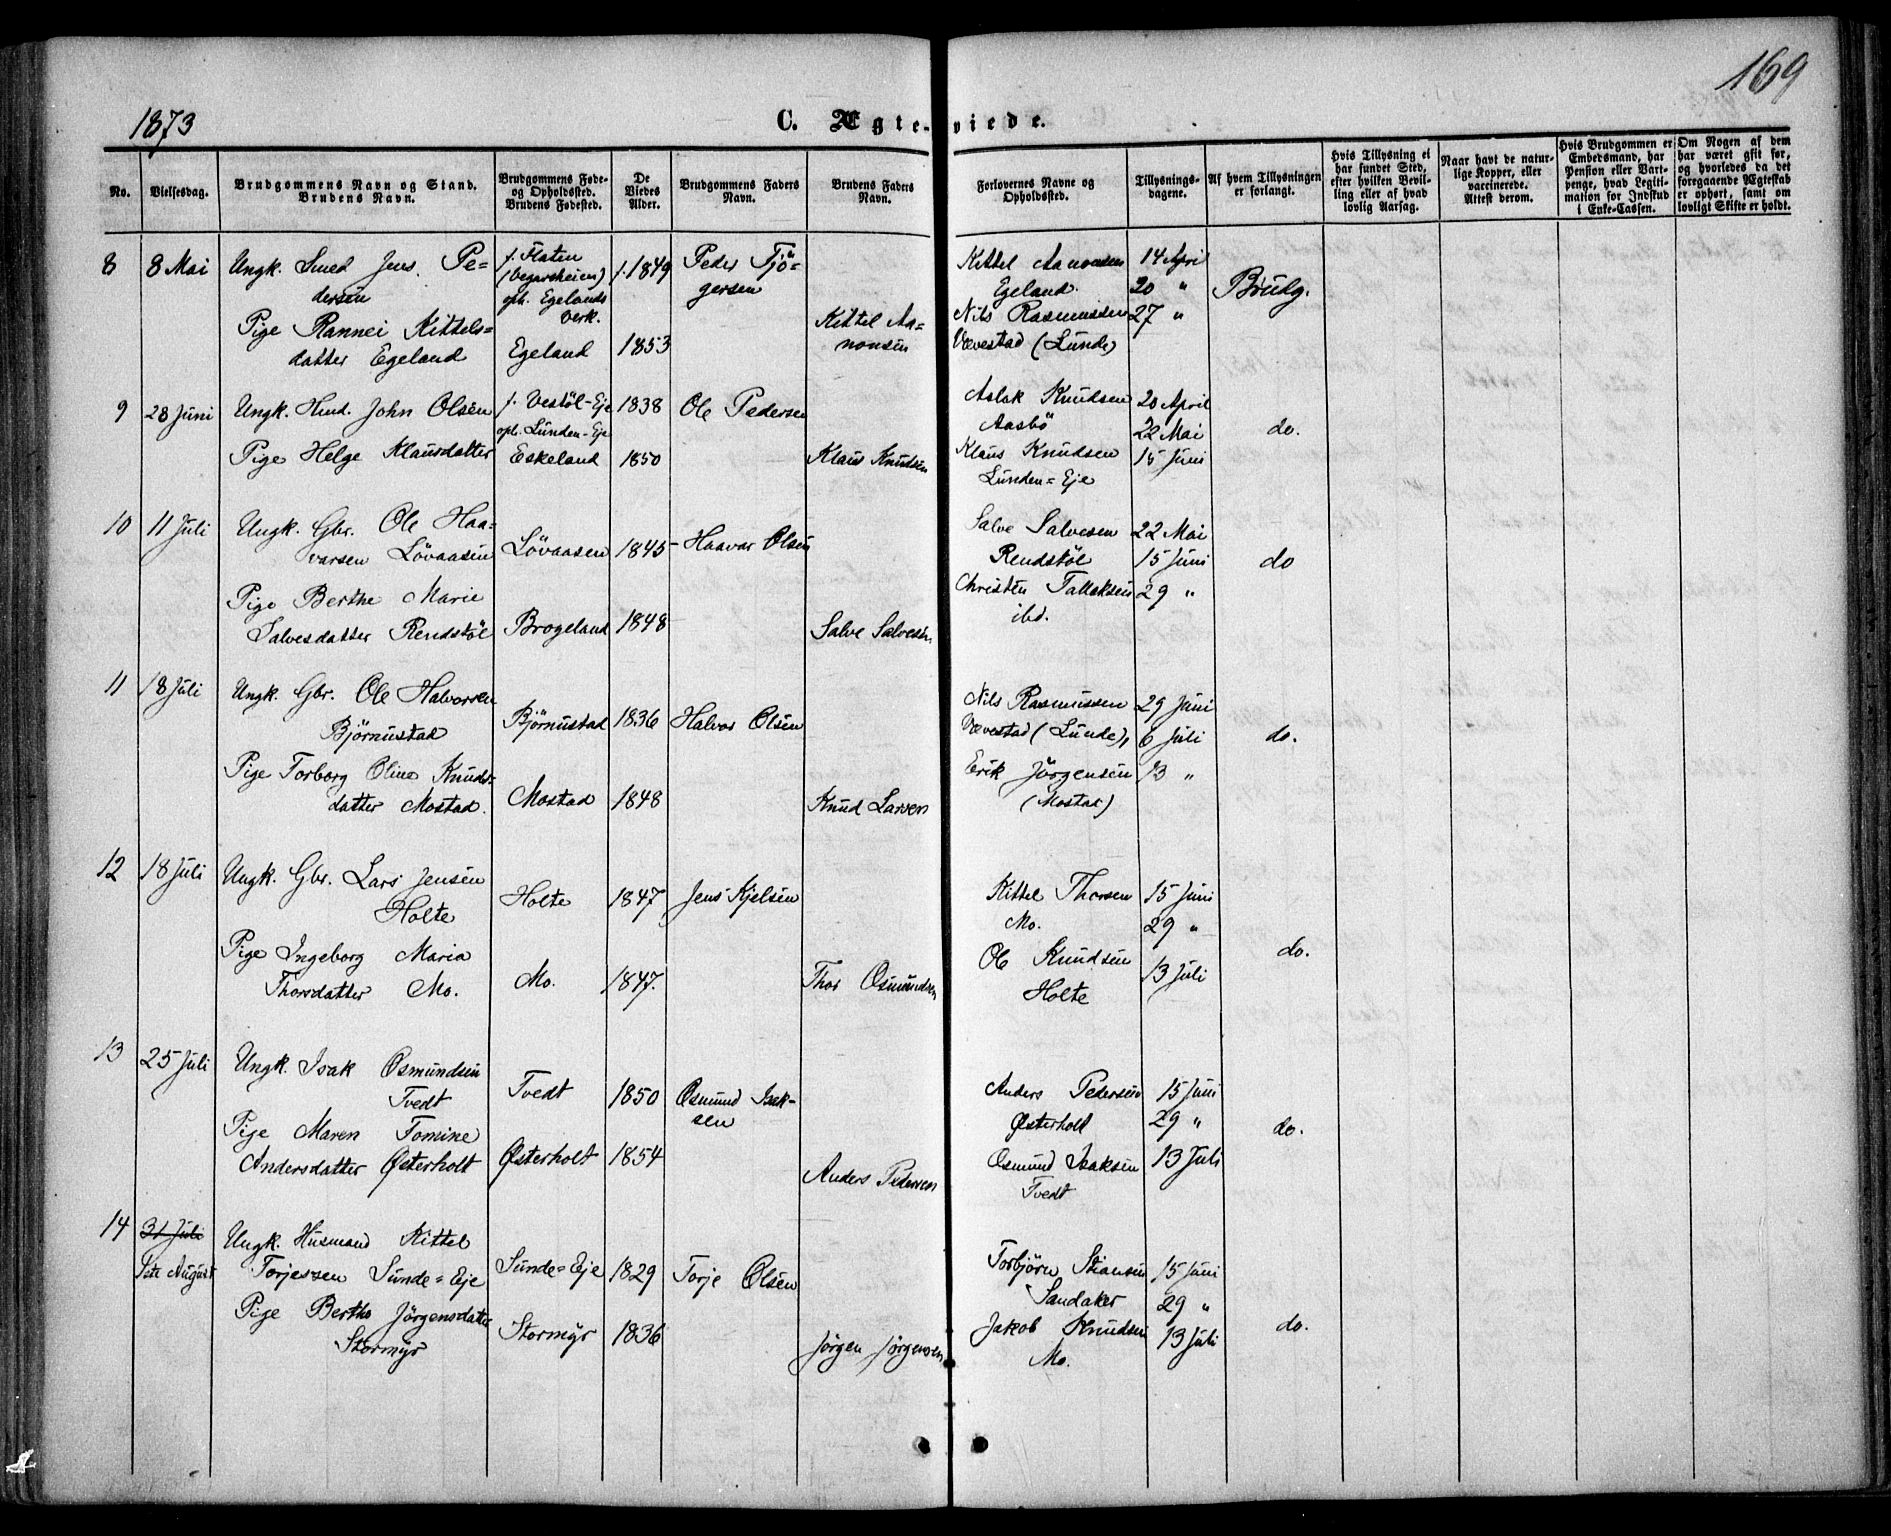 169
1873
C. Ægte-viede.
No.
Vielsesdag.
Brudgommens Navn og Stand.
Brudens Navn.
Brudgommens Føde-
og Opholdssted.
Brudens Fødested.
De
Viedes
Alder.
Brudgommens Faders
Navn.
Brudens Faders
Navn.
Forlovernes Navne og
Opholdssted.
Tillysnings-
dagene.
Af hvem Tillysningen
er forlangt.
Hvis Tillysning ei
har fundet Sted,
efter hvilken Bevil-
ling eller af hvad
lovlig Aarsag.
Naar havt de natur-
lige Kopper, eller
vaccinerede.
Attest derom.
Hvis Brudgommen er
Embedsmand, har
Pension eller Vart-
penge, hvad Legiti-
mation for Indskud
i Enke-Cassen.
Om Nogen af dem
har været gift før,
og hvorledes da det
foregaaende Ægteskab
er ophørt, samt om
lovligt Skifte er holdt.
8
8 Mai
Ungk. Smed Jens Pe=
dersen
f. Flaten
(Vegarsheien)
oph. Egelands
Verk.
f. 1849
Peder Tjö=
gersen
Pige Rannei Kittels=
datter Egeland
Egeland
1853
Kittel Aa=
nonsen
Kittel Aanonsen
Egeland.
Nils Rasmussen
Vævestad (Lunde)
14 April
20 "
27 "
Brudg.
9
28 Juni
Ungk. Hmd. John Olsen
f. Vestöl-Eje
oph. Lunden-Eje
1838
Ole Pedersen
Pige Helge Klausdatter
Eskeland
1850
Klaus Knudsen
Aslak Knudsen
Aasbö
Klaus Knudsen
Lunden=Eje
20 April
22 Mai
15 Juni
do.
10
11 Juli
Ungk. Gbr. Ole Haa=
varsen Lövaasen
Lövaasen
1845
Haavar Olsen
Pige Berthe Marie
Salvesdatter Rendstöl
Brogeland
1848
Salve Salvesen
Salve Salvesen
Rendstöl
Christen Tallaksen
ibd.
22 Mai
15 Juni
29 "
do
11
18 Juli
Ungk. Gbr. Ole Halvorsen
Björnustad
Björnustad
1836
Halvor Olsen
Pige Torborg Oline Knuds=
datter Mostad.
Mostad
1848
Knud Larsen
Nils Rasmussen
Vævestad (Lunde),
Erik Jörgensen
(Mostad)
29 Juni
6 Juli
13 "
do.
12
18 Juli
Ungk. Gbr. Lars Jensen
Holte
Holte
1847
Jens Kjelsen
Pige Ingeborg Maria
Thorsdatter Mo.
Mo.
1847.
Thor Osmundsen
Kittel Thorsen
Mo.
Ole Knudsen
Holte
15 Juni
29 "
13 Juli
do.
13
25 Juli
Ungk. Isak Osmundsen
Tvedt
Tvedt
1850
Osmund Isak-
sen
Pige Maren Tomine
Andersdatter Østerholt
Østerholt
1854
Anders Pedersen
Anders Pedersen
Østerholt
Osmund Isaksen
Tvedt
15 Juni
29 "
13 Juli
do.
14
31 Juli
1ste August
Ungk. Husmand Kittel
Torjessen Sunde=Eje
Sunde=Eje
1829
Torje Olsen
Pige Berthe Jörgensdatter
Stormyr
Stormyr
1836
Jørgen Jørgensen
Torbjörn Stiansen
Sandaker
Jakob Knudsen
Mo.
15 Juni
29 "
13 Juli
do.